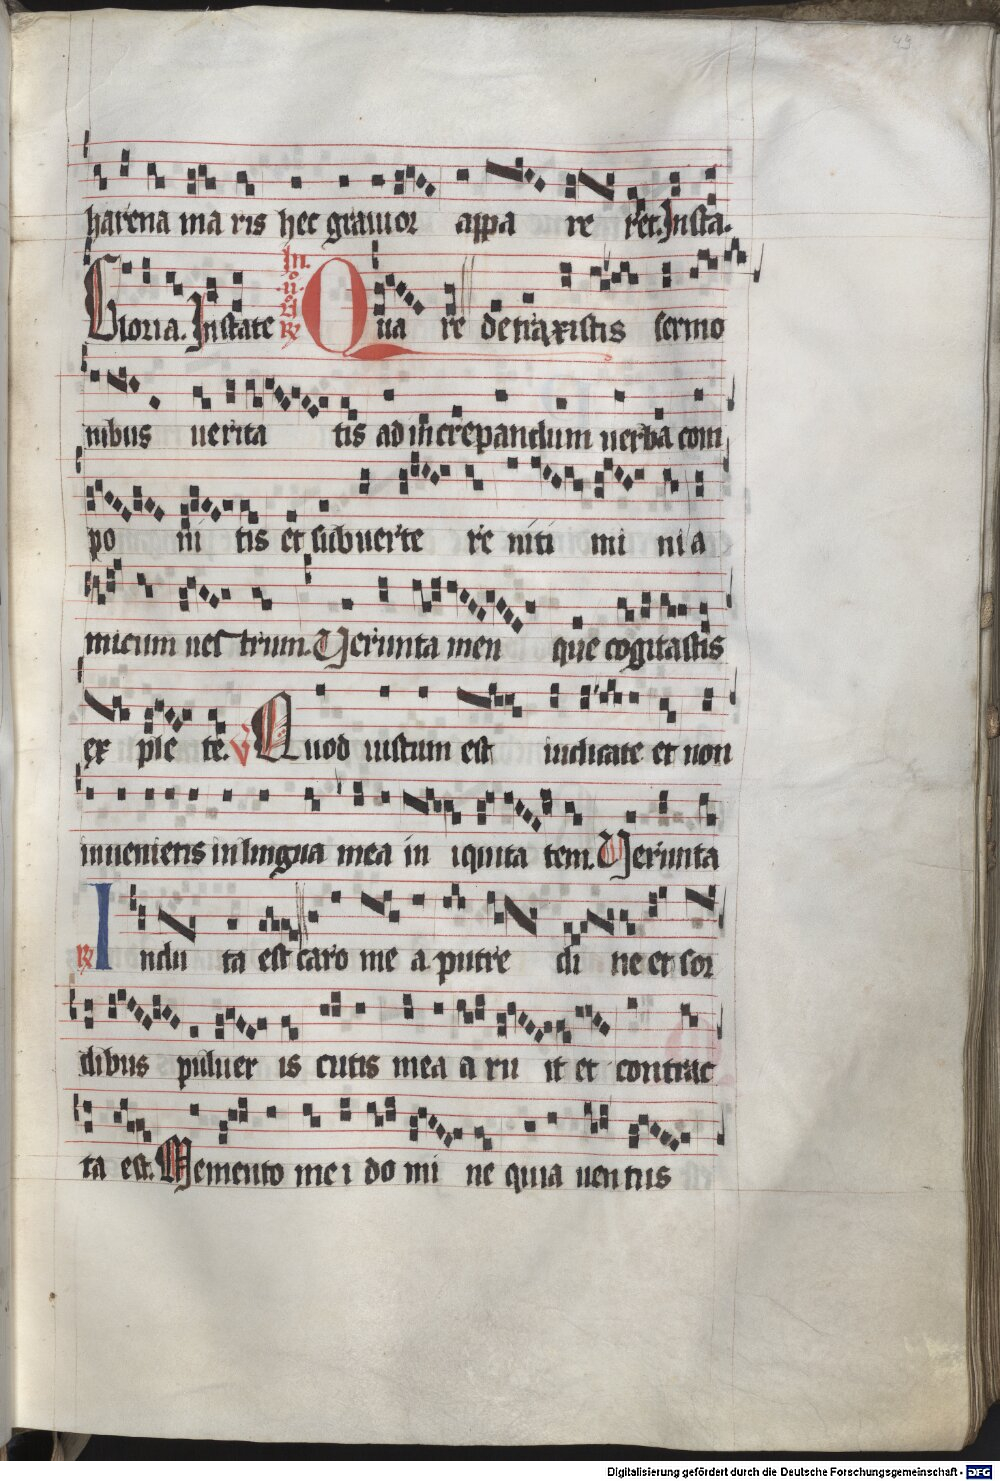 49
harena ma ris hec grauior appa re ret. Insta.
Gloria. Instate In .ii. R Qua re detraxistis sermo
nibus uerita tis ad increpandum uerba com
po ni tis et subuerte re niti mi ni a
micum ues trum. Uerunta men que cogitastis
ex ple te. V Quod iustum est iudicate et non
inuenietis in lingua mea in iquita tem. Uerunta
R Indu ta est caro me a putre di ne et sor
dibus puluer is cutis mea a ru it et contrac
ta est. Memento me i do mi ne quia uen tus
Digitalisierung gefördert durch die Deutsche Forschungsgemeinschaft - DFG